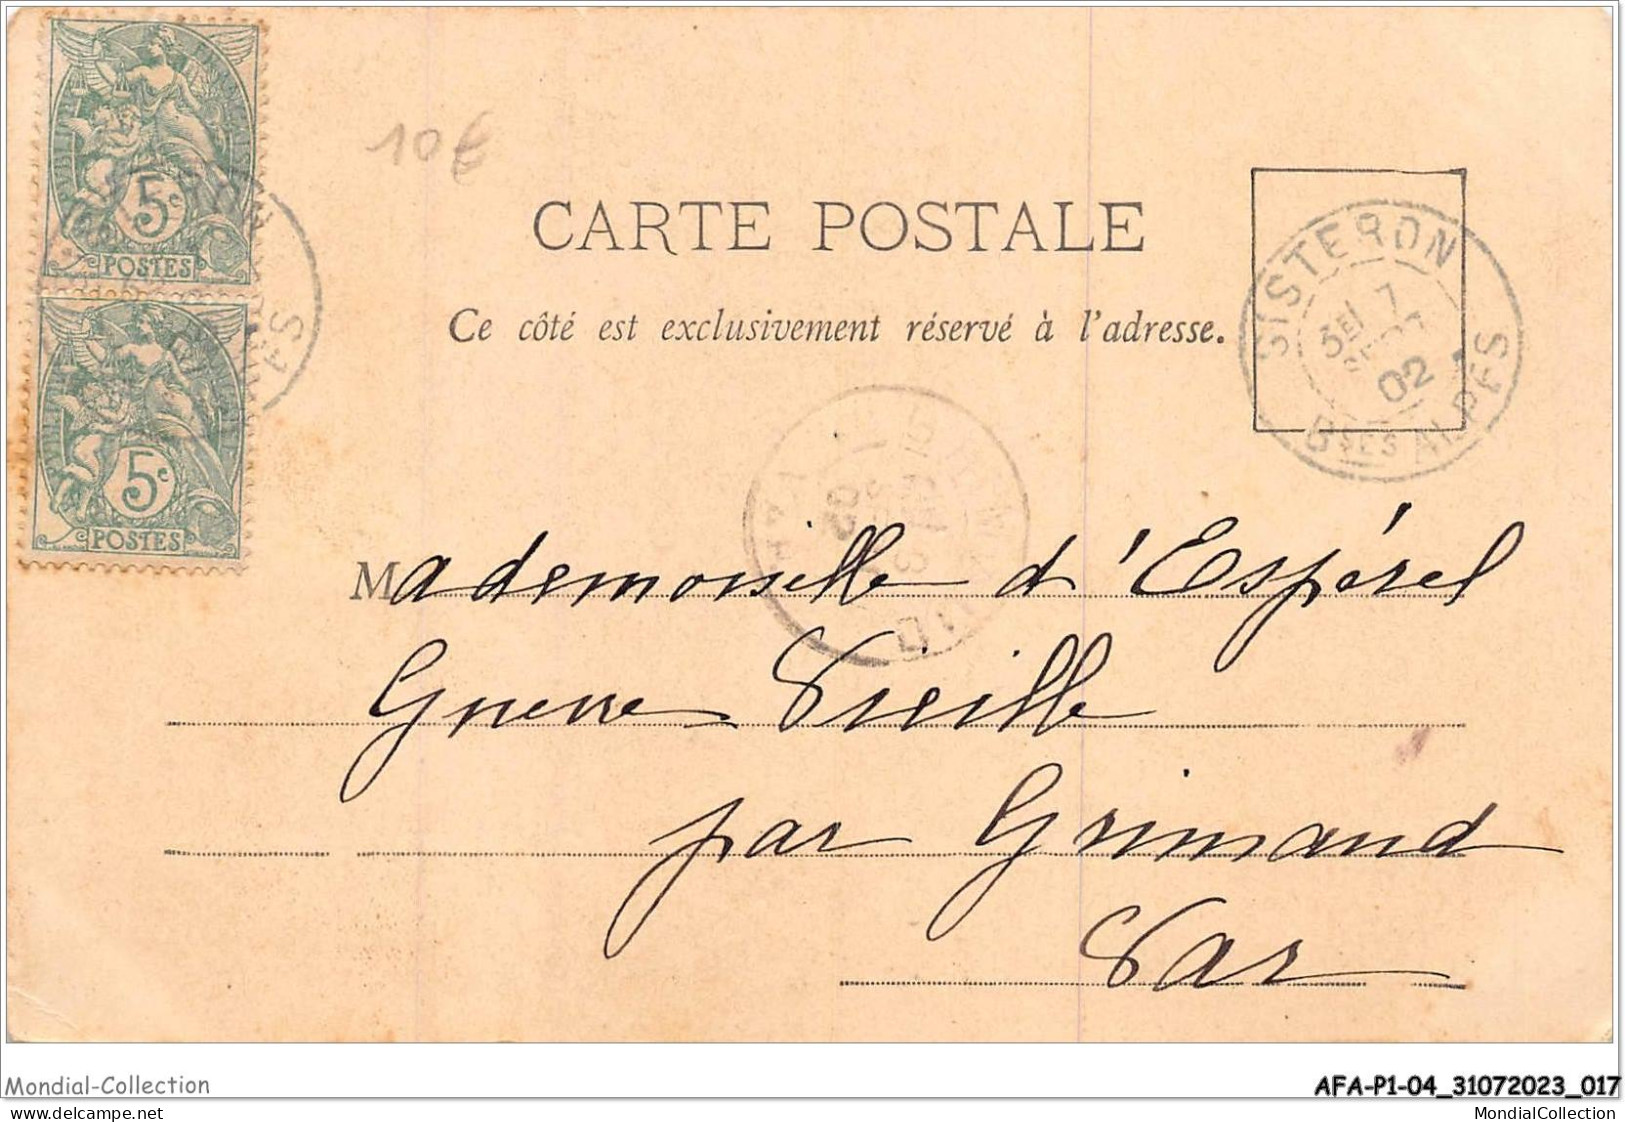 10€
CARTE POSTALE
Ce côté est exclusivement réservé à l'adresse.
5c
POSTES
5c
POSTES
SISTERON
7
02
BSES ALPES
Mademoiselle d'Espérel
Guerre Vieille
par Grimaud
Var
Mondial-Collection
AFA-P1-04_31072023_017
MondialCollection.com
MondialCollection